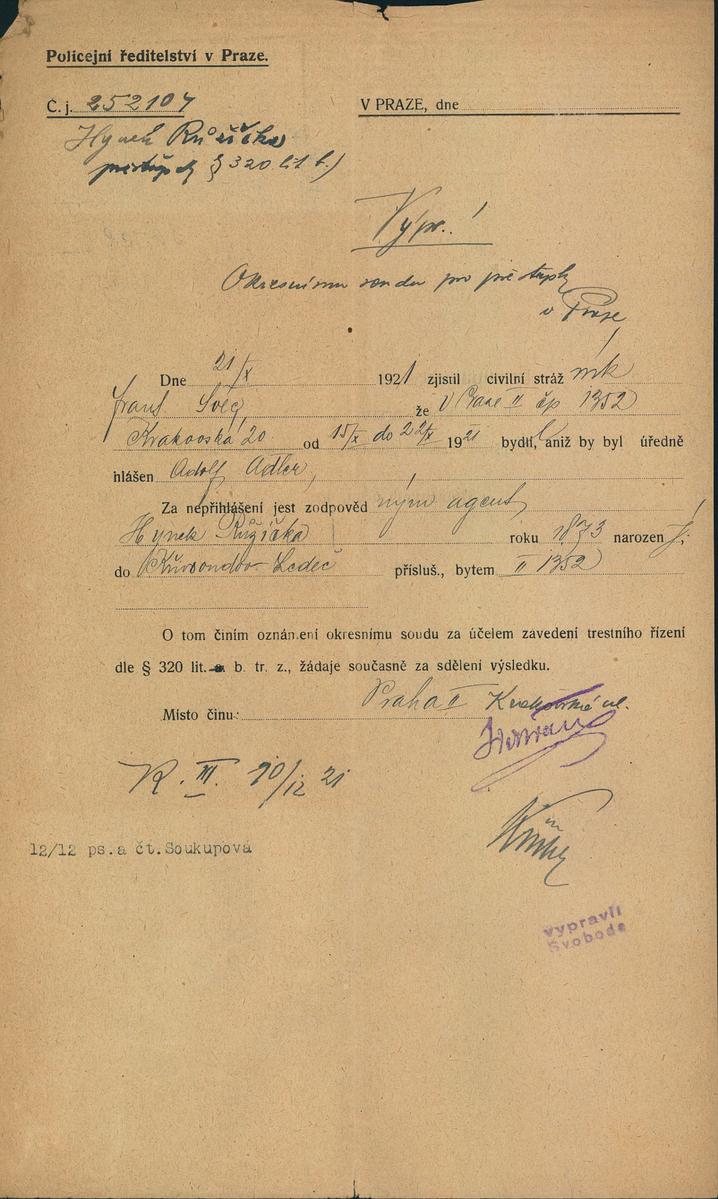 Policejní ředitelství v Praze.
Č. j. 252107
V PRAZE, dne
Hynek Růžička
přestupek § 320 lit b.)
Výpr.!
Okresnímu soudu pro přestupky
v Praze
Dne 21/X 1921 zjistil civilní stráž
Frant. že V Praze II čp 1352
Krakovská 20 od 15/X do 22/X 1921 bydlil, aniž by byl úředně
hlášen Adolf Adler,
Za nepřihlášení jest zodpovědným agent
Hynek Růžička roku 1873 narozen
do Ledeč přísluš., bytem II 1352
O tom činím oznámení okresnímu soudu za účelem zavedení trestního řízení
dle § 320 lit. a b. tr. z., žádaje současně za sdělení výsledku.
Místo činu: Praha II Krakovská ul.
K. III. 10/12 21
12/12 ps.a čt.Soukupová
vypravil
Svoboda